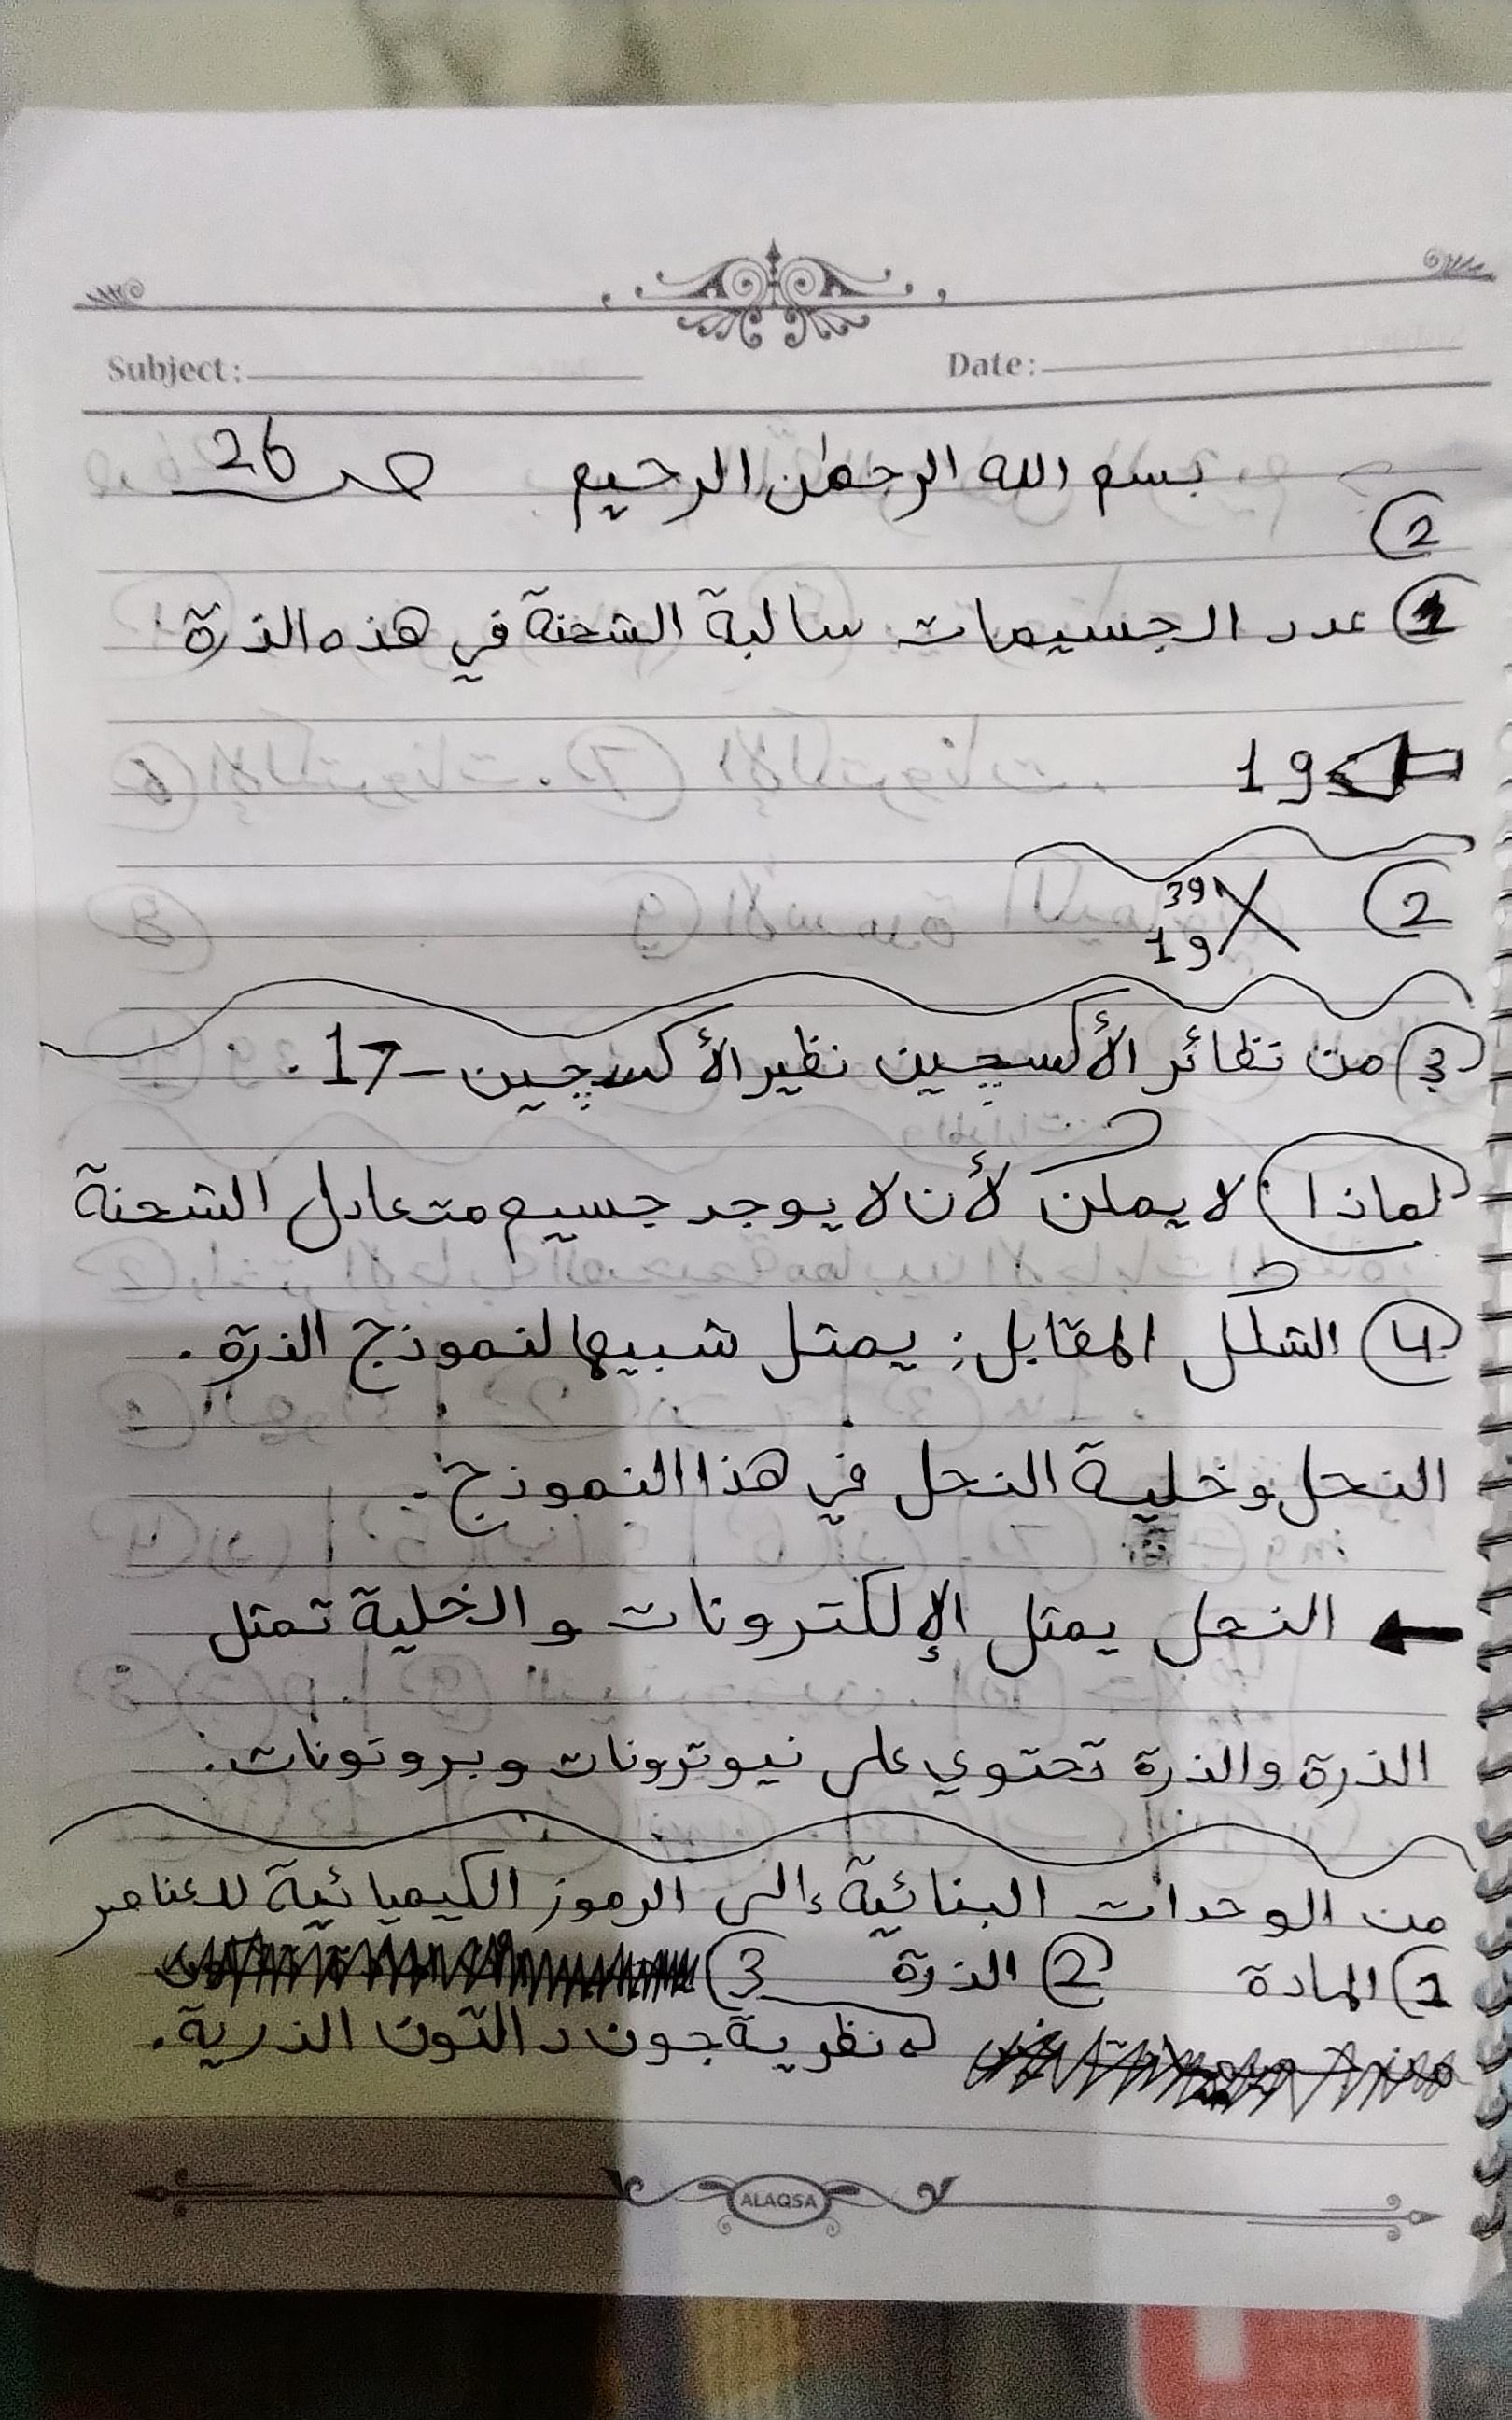 Subject: Date:
بسم الله الرحمٰن الرحيم ص 26
2
1 عدد الجسيمات سالبة الشحنة في هذه الذرة
19
2 39 X 19
3 من نظائر الأكسجين نظير الأكسجين - 17.
لماذا لا يمكن لأن لا يوجد جسيم متعادل الشحنة
4 الشكل المقابل: يمثل شبيها لنموذج الذرة.
النحل وخلية النحل في هذا النموذج.
النحل يمثل الإلكترونات والخلية تمثل
الذرة والذرة تحتوي على نيوترونات وبروتونات.
من الوحدات البنائية إلى الرموز الكيميائية للعناصر
1 المادة 2 الذرة 3
نظرية جون دالتون الذرية.
ALAQSA